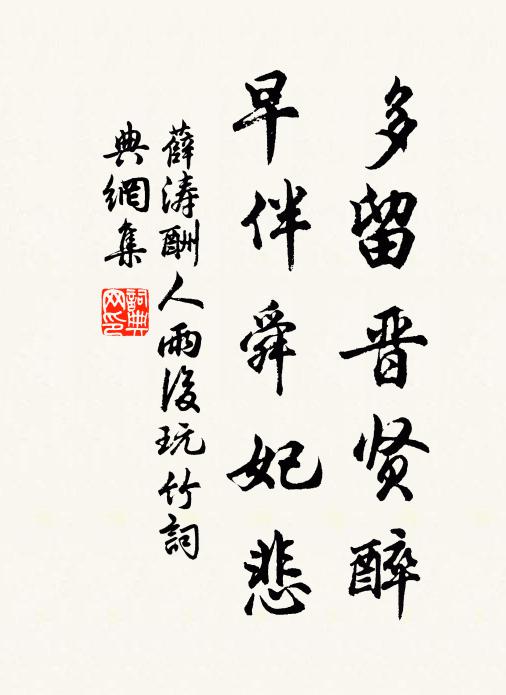 多留晋贤醉
早伴舜妃悲
薛涛酬人雨後玩竹詞
典網集
詞典网印